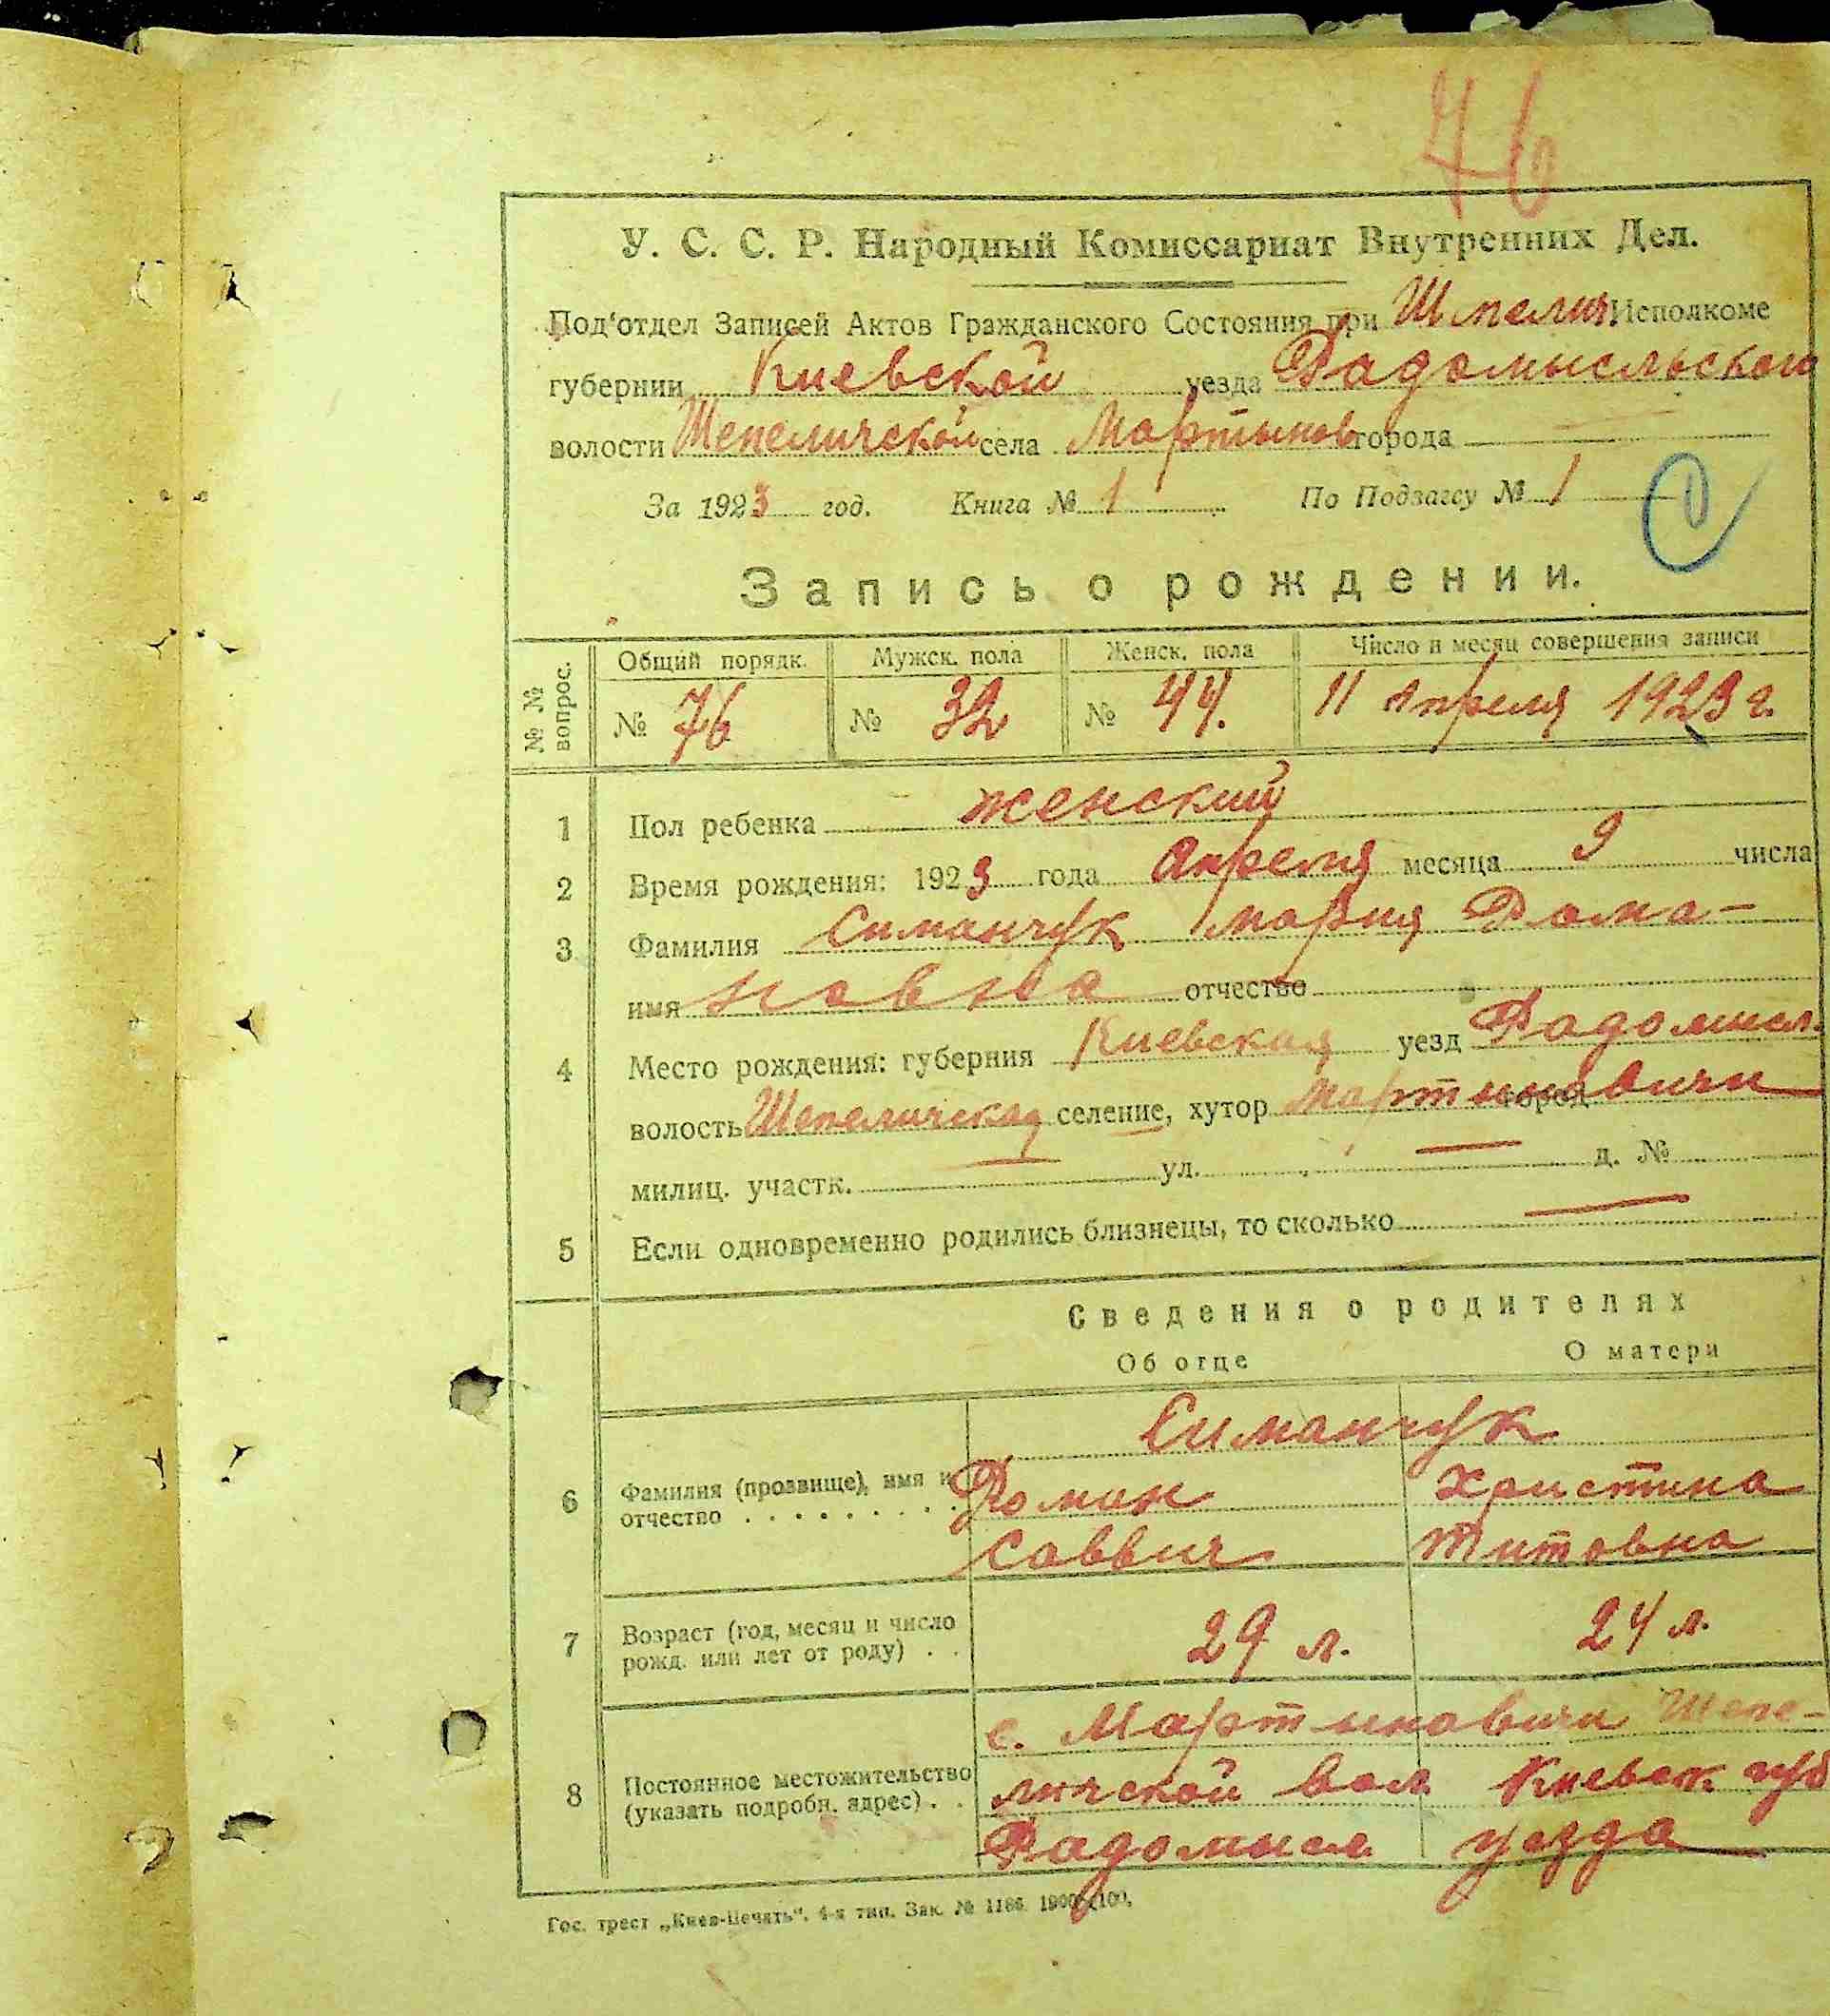 76
У. С. С. Р. Народный Комиссариат Внутренних Дел.
Под'отдел Записей Актов Гражданского Состояния при Шпелич. Исполкоме
губернии Киевской уезда Радомысльской
волости Шепеличской села Мартынов города
За 1923 год. Книга № 1 По Подзагсу № 1
Запись о рождении.
№ № вопрос.
Общий порядк. Мужск. пола Женск. пола Число и месяц совершения записи
№ 76 № 32 № 44. 11 Апреля 1923 г.
1 Пол ребенка женский
2 Время рождения: 1923 года Апреля месяца 9 числа
3 Фамилия Симанчук Мария Рома-
имя новна отчество
4 Место рождения: губерния Киевская уезд Радомысл.
волость Шепеличская селение, хутор Мартыновичи город
милиц. участк. ул. д. №
5 Если одновременно родились близнецы, то сколько
Сведения о родителях
Об отце О матери
Симанчук
6 Фамилия (прозвище), имя и отчество Роман Христина
Саввич Титовна
7 Возраст (год, месяц и число рожд. или лет от роду) 29 л. 24 л.
с. Мартыновичи Шепе-
8 Постоянное местожительство (указать подробн. адрес) личской вол. Киевск губ
Радомысл уезда
Гос. трест „Киев-Печать". 4-я тип. Зак. № 1186